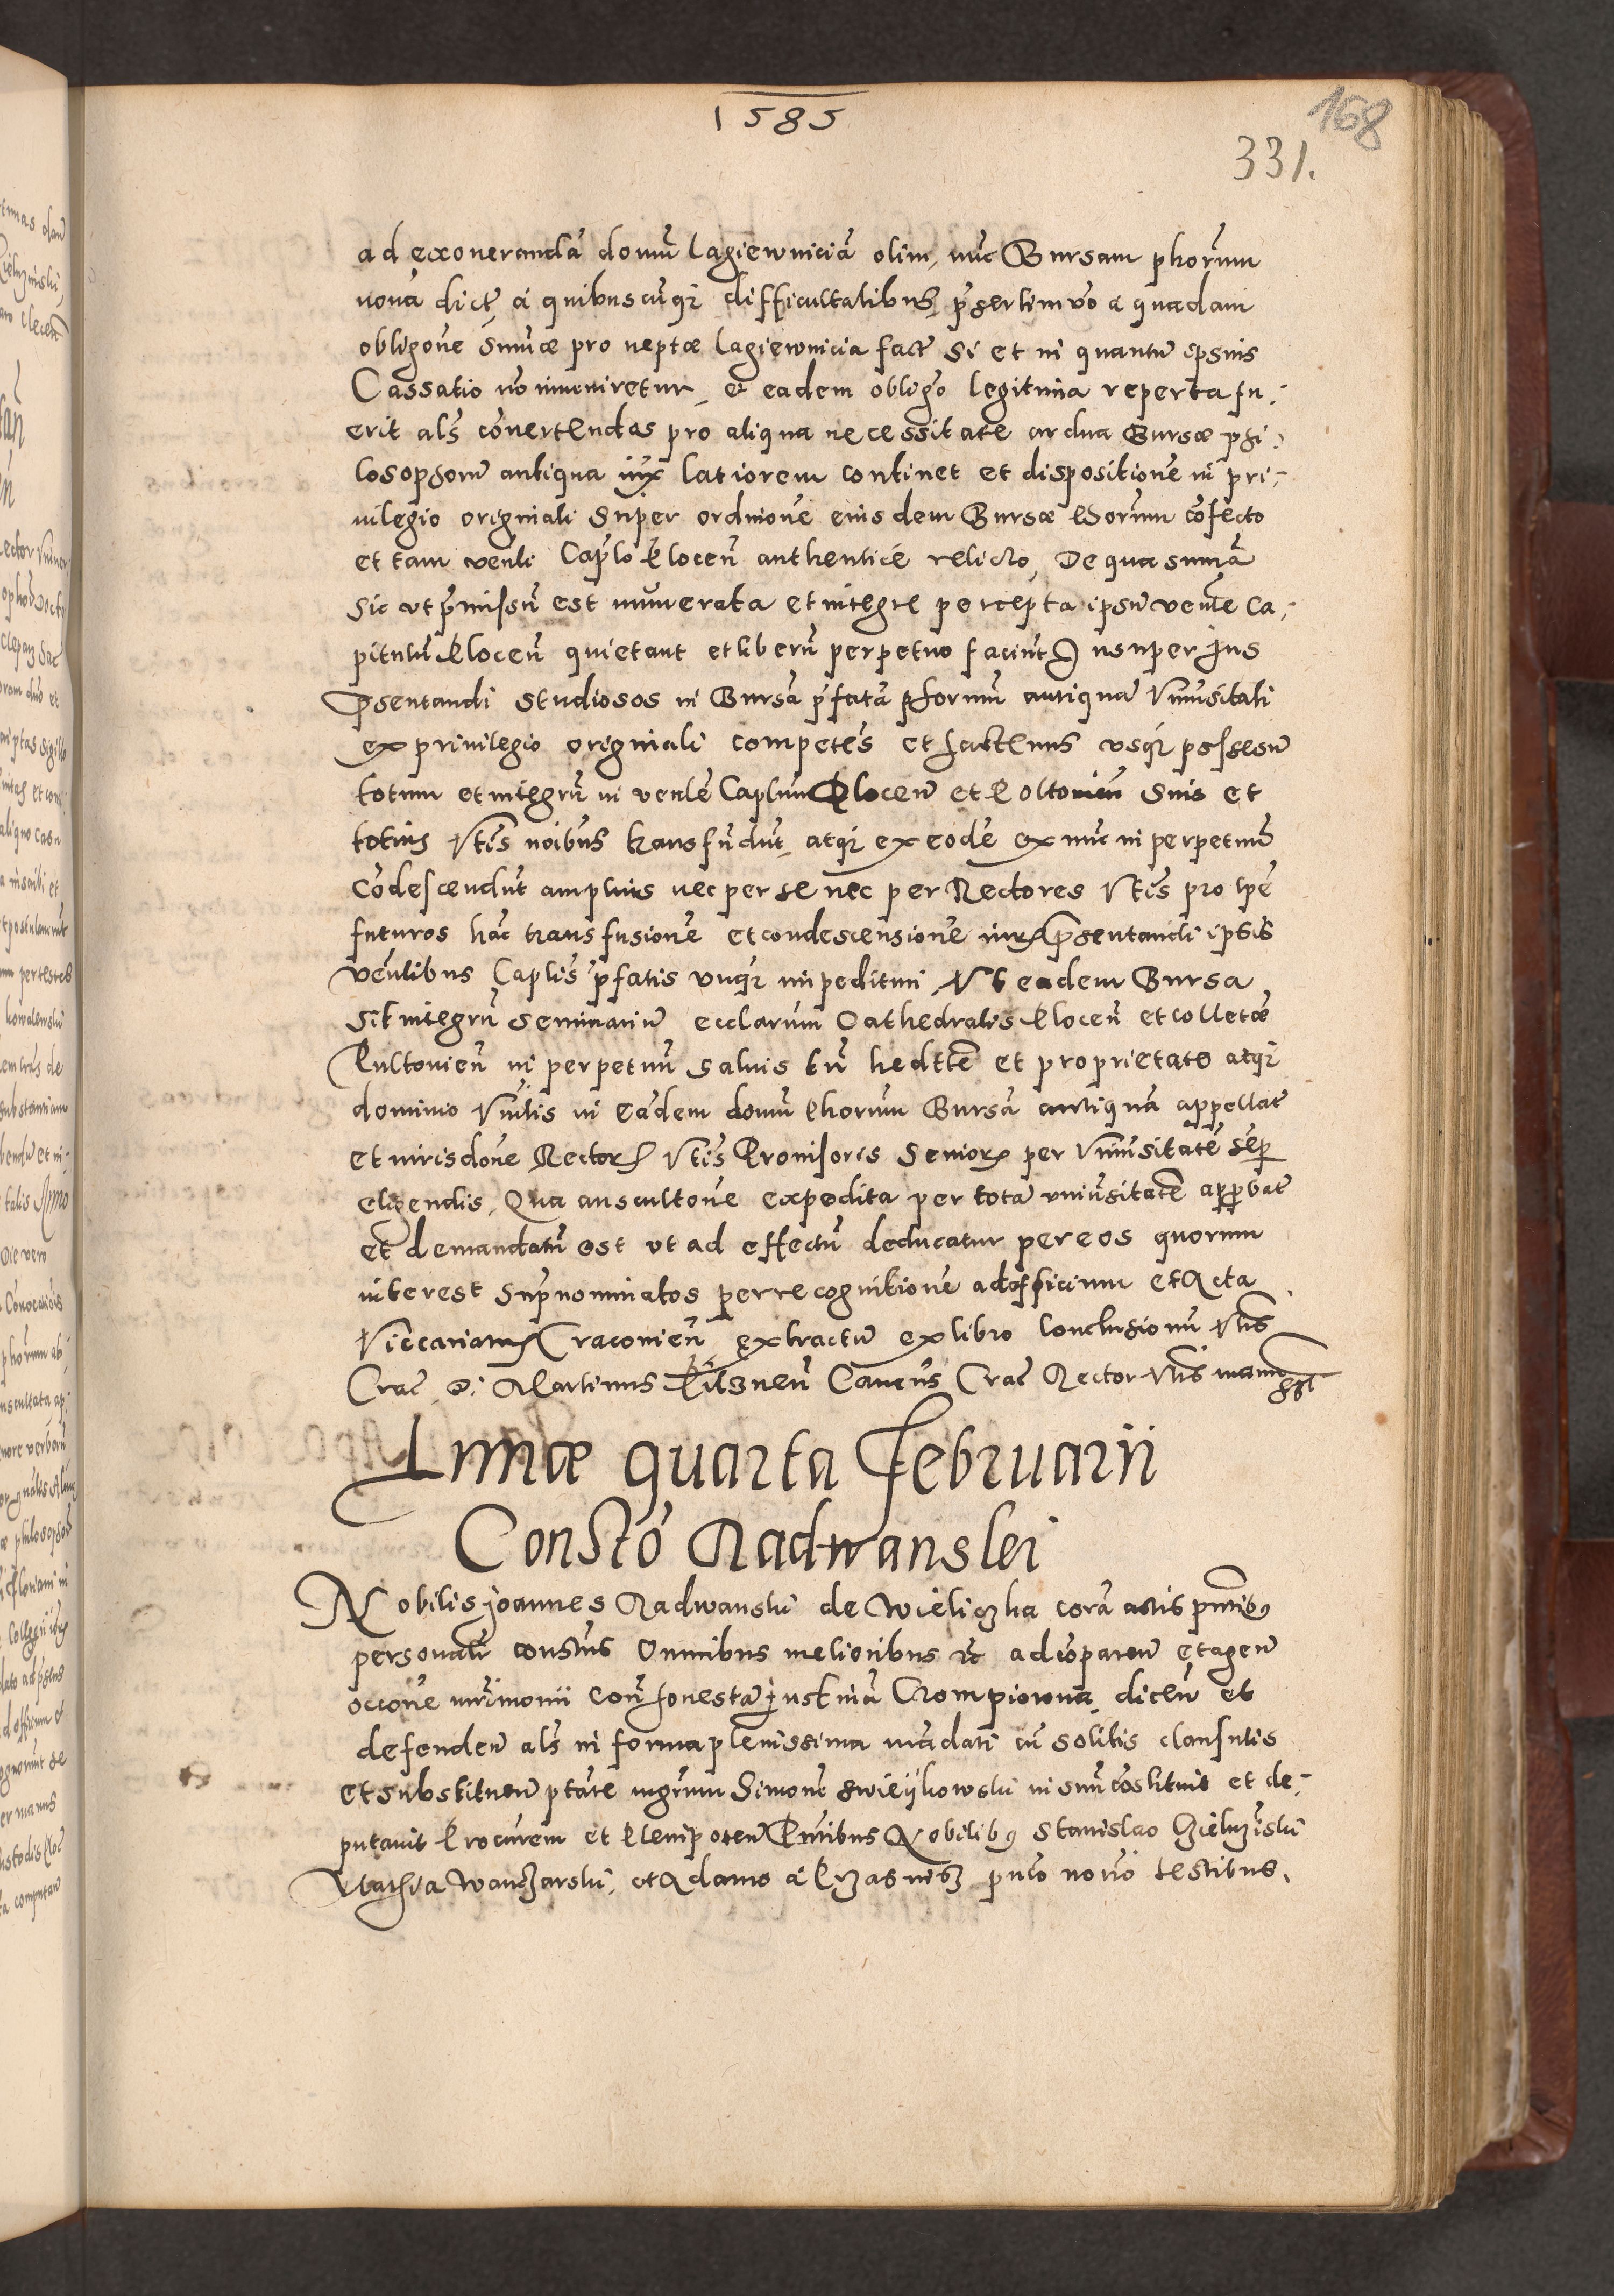 1585
168
331.
ad exonerandā domū Lagiewniciā olim, nūc Bursam phorūm
nouā dictā à quibuscūq; difficultatibus, p̄sertim vo a quadam
obligōne sūmæ pro neptæ Lagiewnicia factā Si et in quantū ipsius
Cassatio nō inueniretur, et eadem obligō legitima reperta fu-
erit als cōnertendas pro aliqua necessitate ardua Bursæ phi-
losophorū antiqua iux latiorem continet et dispositionē in pri-
uilegio originali super ordinōne eiusdem Bursæ confecto
et tam venli Caplo Plocen̄ authenticè relicto, De qua sūmā
sic vt p̄missū est numerata et integre percepta ipsū venle Ca-
pitulū Plocen̄ quietant et liberū perpetuo faciūt Insuper Jus
p̄sentandi studiosos in Bursā p̄fatā phorum antiquā Vniūsitati
ex priuilegio originali competēs et hactenus vsq; possesū
totum et integrū in venle Caplum Plocen̄ et Poltouien̄ suis et
totius Vtis noibus transfūdūt, atq; ex eodē ex nūc in perpetuū
Cōdescendūt amplius nec per se nec per Rectores Vtis pro tpē
futuros hāc transfusionē et condescensionē iuris p̄sentandi ipsis
venlibus Caplis p̄fatis vnq; impedituri, Vt eadem Bursa
sit integrū seminariū ecclarum Cathedralis Plocen̄ et colletæ
Pultouien̄ in perpetuū saluis tn̄ hedtte et proprietate atq;
dominio Vniūtis in eādem domū Phorum Bursā antiquā appellatā
et iurisdōne Rectoris Vtis Prouisoris Senioris per Vniūsitatē sep
eligendis, Qua auscultōne expedita per totā vniūsitatē approbatā
et demandatū est vt ad effectū deducatur per eos quorum
interest sup̄nominatos per recognitionē ad officium et Acta
Viccariatus Cracouien̄ extractū ex libro Conclusionū Vtis
Crac̄ Martinus Pilznen̄ Canon̄s Crac̄ Rector Vtis manu sst
Lunæ quarta Februarii
Constō Radwanskei
Nobilis Joannes Radwanski de Wieliczka corā actis pntibus
personatr constūs Omnibus melioribus etc ad cōparen̄ et agen̄
occōne mrimonii con̄ honestā Justinā Crompiowna, dicen̄ et
defenden̄ als in forma plenissima mādati cū solitis clausulis
et substituen̄ ptāte mgrum Simonē Swieykowski in suū cōstituit et de-
putauit Procurem et Plenipoten̄ Pntibus Nobilibus Stanislao Zieluzinski
Mathia Wanczarski, et Adamo à Krzasnisz pnto nouō testibus.